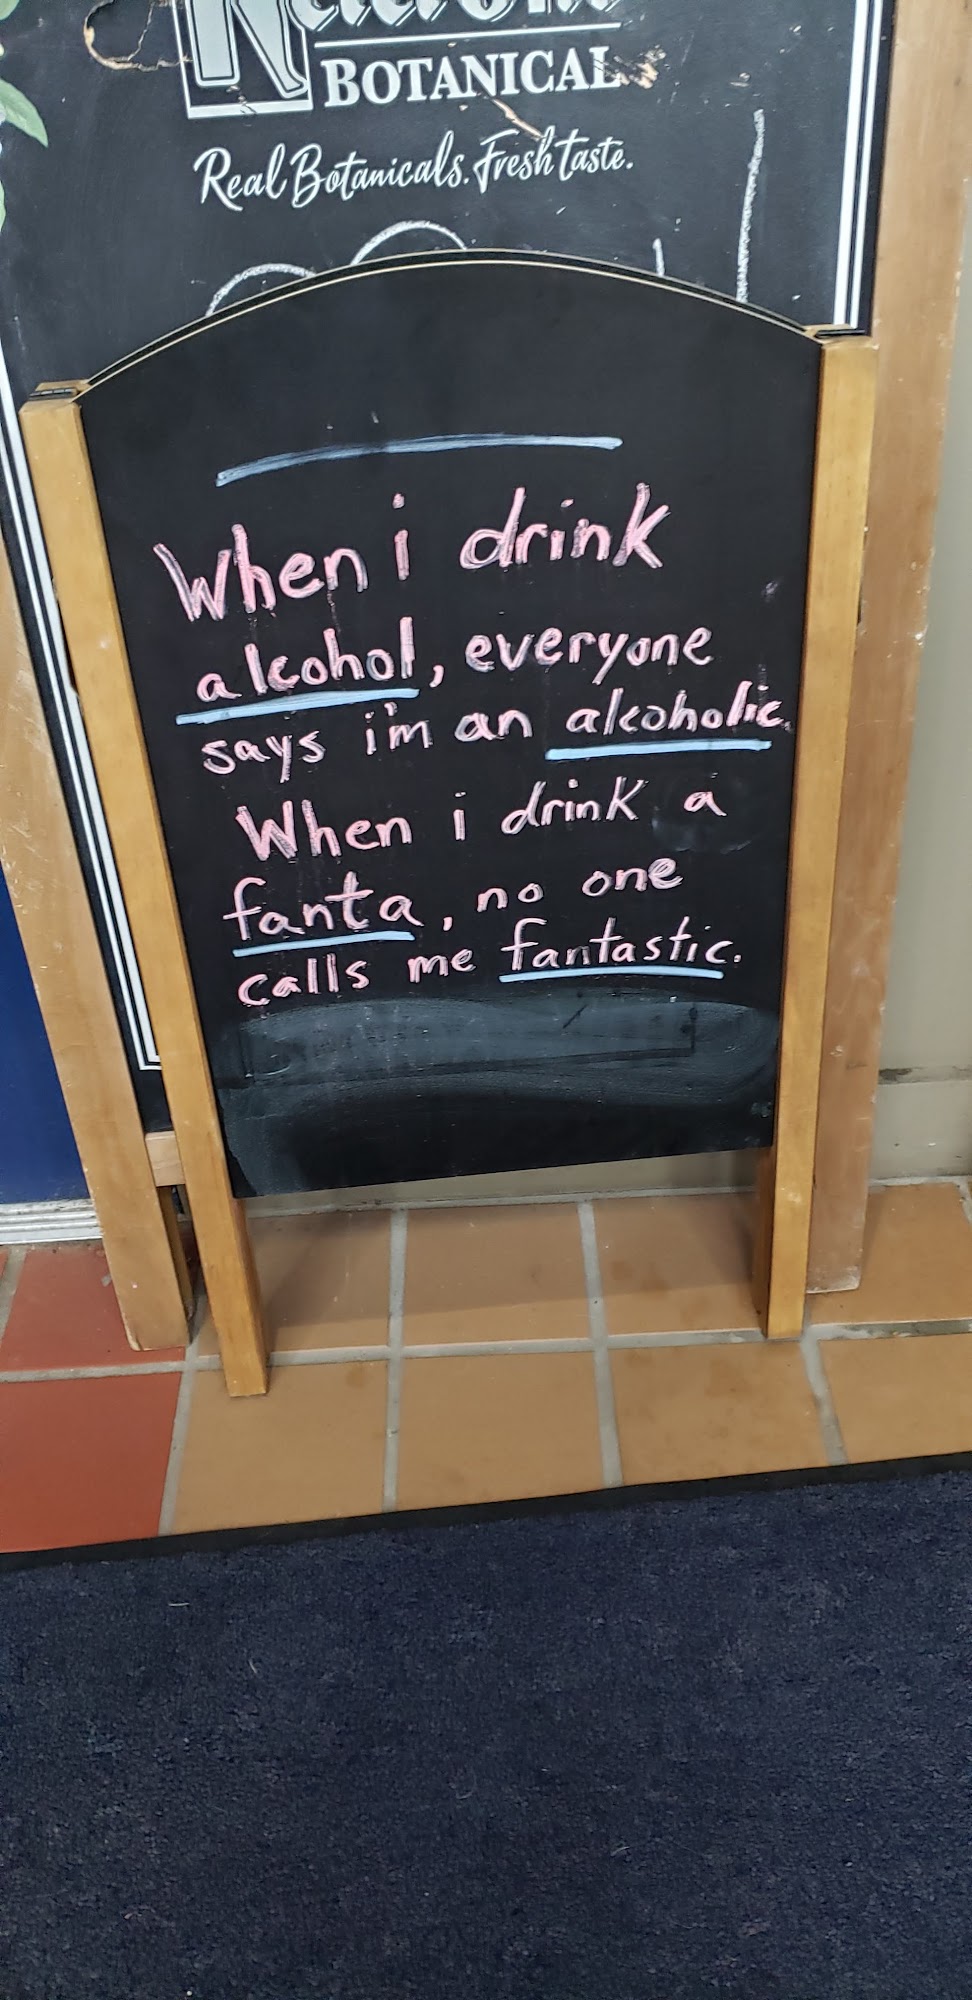 BOTANICAL
Real Botanicals. Fresh taste.
When i drink
alcohol, everyone
says i'm an alcoholic.
When i drink a
fanta, no one
calls me fantastic.